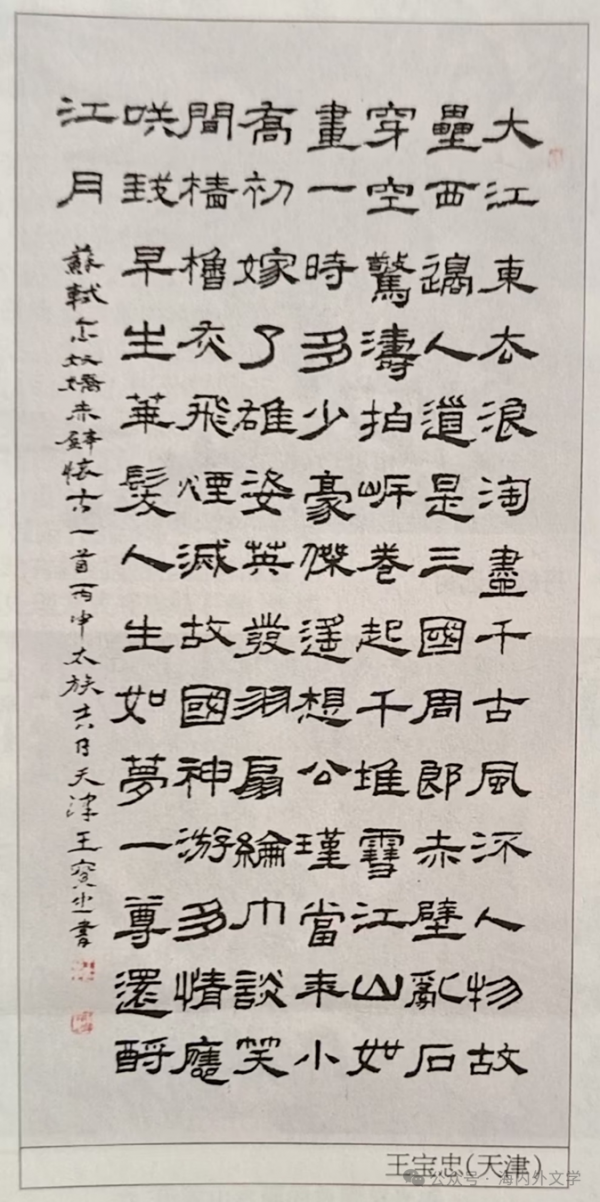 大江東去浪淘盡千古風流人物故
壘西邊人道是三國周郎赤壁亂石
穿空驚濤拍岸卷起千堆雪江山如
畫一時多少豪傑遙想公瑾當年小
喬初嫁了雄姿英發羽扇綸巾談笑
間檣櫓灰飛煙滅故國神游多情應
咲我早生華髮人生如夢一尊還酹
江月
蘇軾念奴嬌赤壁懷古一首丙申太族吉日天津王寶忠書
王宝忠(天津)
公众号·海内外文学